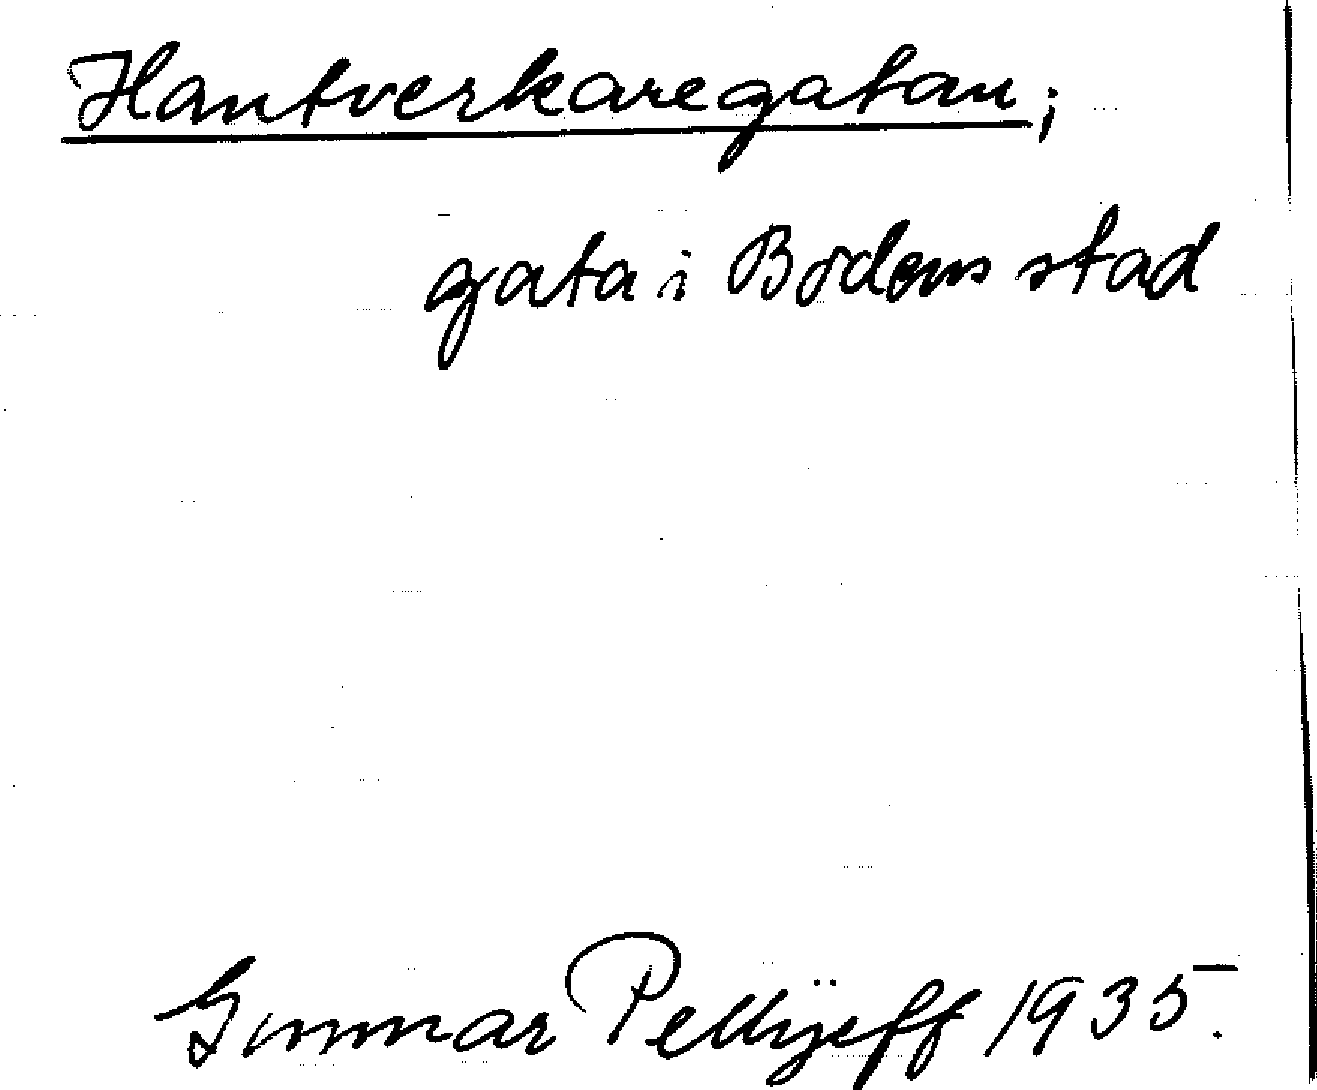 Hantverkaregatan;
gata i Bodens stad
Gunnar Pellijeff 1935.